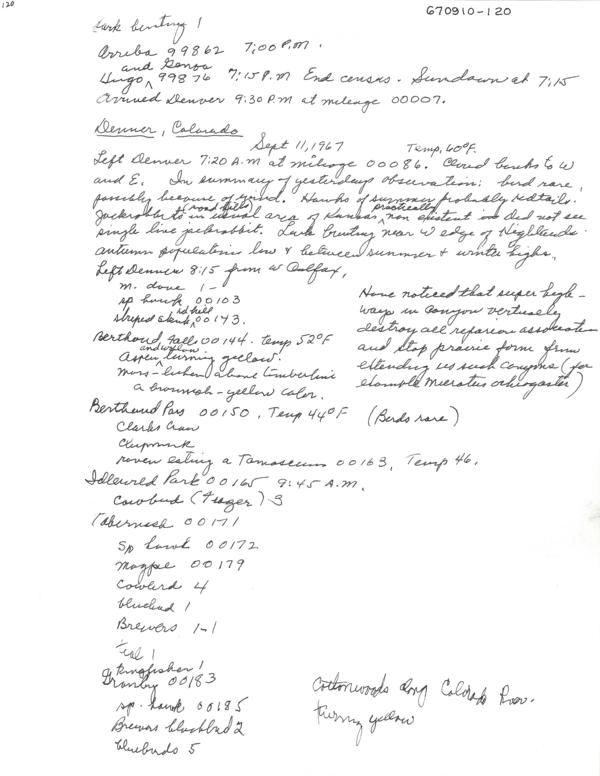 120
670910-120
Lark bunting 1
Arriba 99862 7:00 P.M.
and Genoa
Hugo 99876 7:15 P.M End census. Sundown at 7:15
Arrived Denver 9:30 P.M at mileage 00007.
Denver, Colorado
Sept 11, 1967 Temp, 60°F.
Left Denver 7:20 A.M at mileage 00086. Cloud banks to W
and E. In summary of yesterdays observation: bird rare,
possibly because of wind. Hawks of summer probably Redtails.
(road kills) practically
Jackrabbits in usual area of Kansas non existent and did not see
single live jackrabbit. Lark bunting near W edge of Highlands.
autumn populations low & between summer & winter highs.
Left Denver 8:15 from W Colfax,
m. dove 1-
sp hawk 00103
rd kill
striped skunk 00143.
Berthoud Falls 00144. temp 52°F
and willow
Aspen turning yellow.
moss-lichen above timberline
a brownish-yellow color.
Have noticed that super high-
ways in canyon vertically
destroy all reparean association
and stop prairie form from
extending up such canyons (for
example Microtus ochrogaster)
Berthoud Pass 00150, Temp 44°F (Birds rare)
Clarks Crow
Chipmunk
raven eating a Tamascurus 00163, Temp 46.
Idlewild Park 00165 9:45 A.M.
Cowbird (Trager) 3
Tabernash 00171
Sp hawk 00172
Magpie 00179
Cowbird 4
bluebird 1
Brewers 1-1
teal 1
kingfisher 1
Granby 00183
sp. hawk 00185
Brewers blackbird 2
bluebirds 5
Cottonwoods along Colorado River.
turning yellow